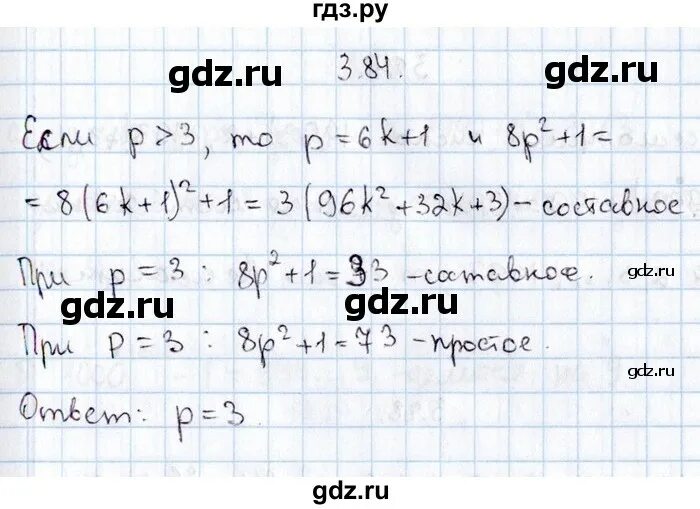 гдз.ру
gdz.ru 3.84. gdz.ru
Если p > 3, то p = 6k+1 и 8p²+1 =
= 8(6k+1)²+1 = 3(96k²+32k+3) – составное
При p = 3 : 8p²+1 = 33 – составное. gdz.ru
gdz.ru gdz.ru
При p = 3 : 8p²+1 = 73 – простое. gdz.ru
Ответ: p = 3.
gdz.ru